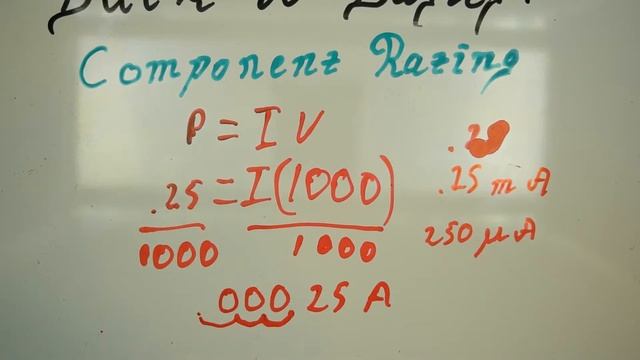 Component Rating
P = I V
.25 = I(1000)
1000 1000
.00025 A
.2
.25 m A
250 μA